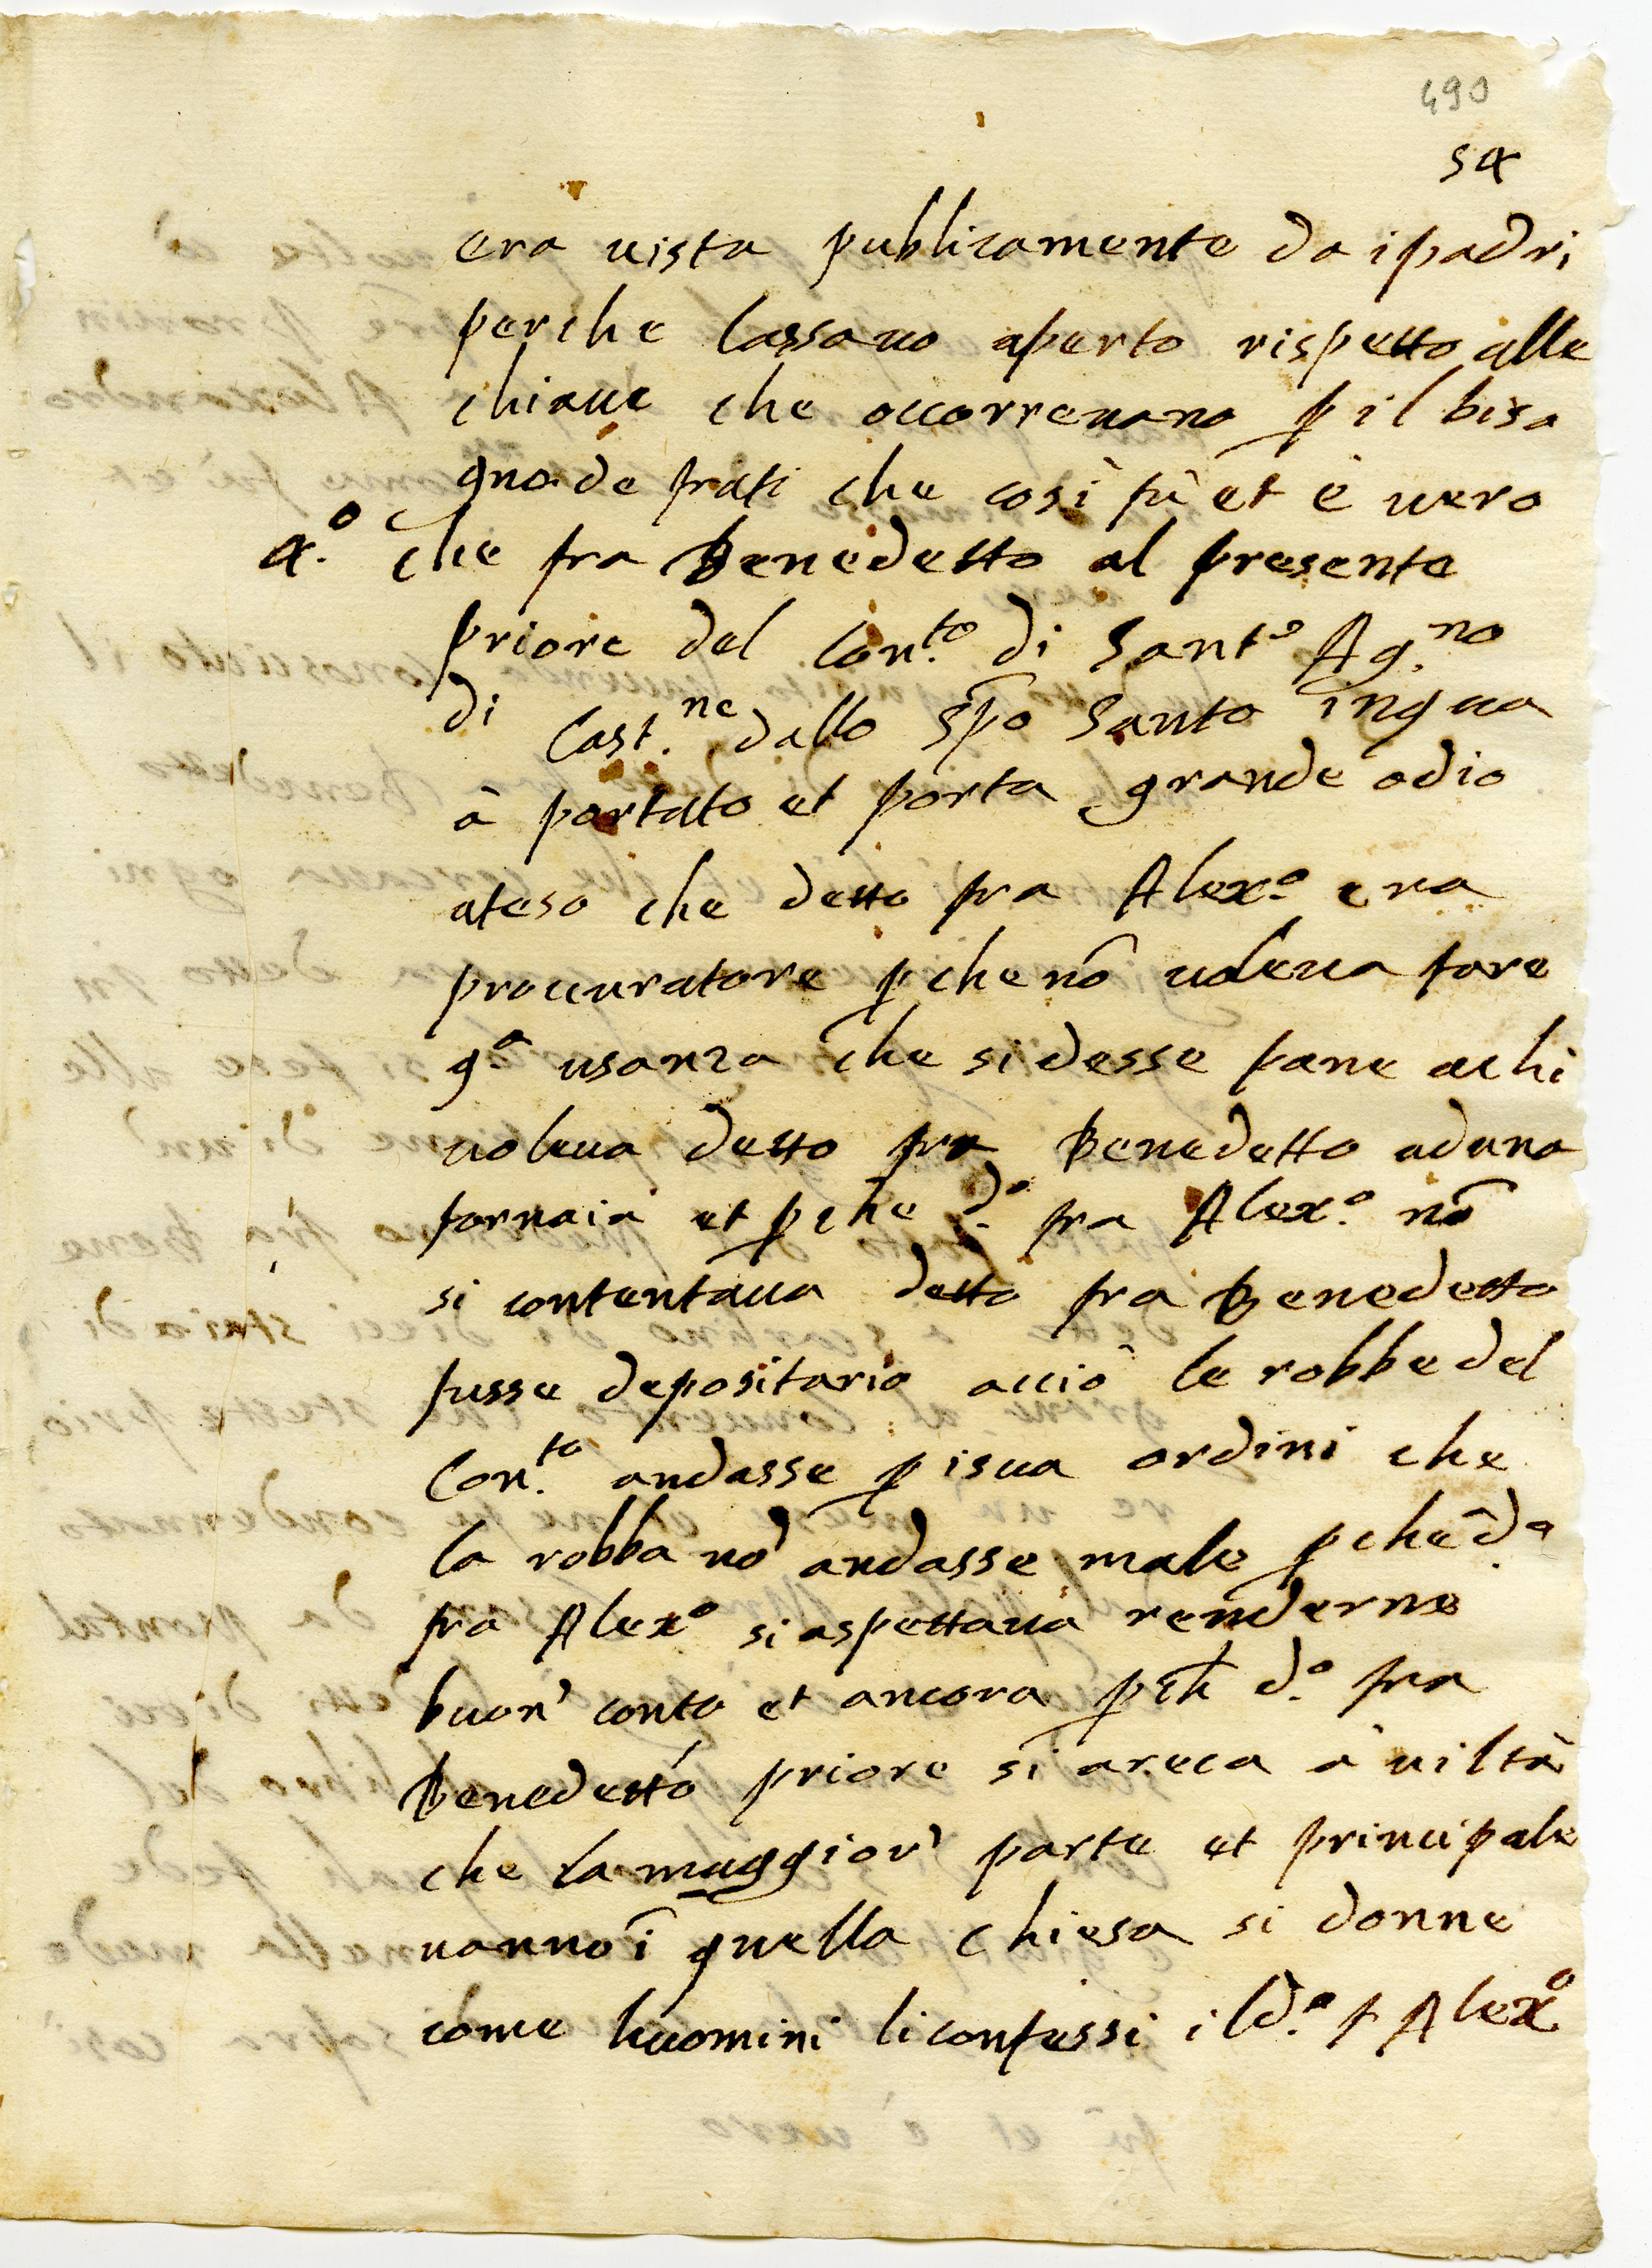 490
54
era uista publicamente da i padri
perche lassauo aperto rispetto alle
chiaue che occorreuano p il biso
gno de frati che così fù et è uero
4.º Che fra Benedetto al presente
priore del Con.to di Santo Ag.no
di Cast.ne dallo Spo Santo in qua
à portato et porta grande odio
ateso che detto fra Alex.º era
procuratore pche nō uoleua fare
q.ª usanza che si desse pane achi
uoleua detto fra Benedetto aduna
fornaia et pche d.º fra Alex.º nō
si contentaua detto fra Benedetto
fusse depositario acciò le robbe del
Con.to andasse p i sua ordini che
la robba nō andasse male pche d.º
fra Alex.º si aspettaua renderne
buon' conto et ancora pch d.º fra
Benedetto priore si areca à uiltà
che la maggior' parte et principale
uanno ī quella chiesa si donne
come huomini li confessi il d.º f Alex.º